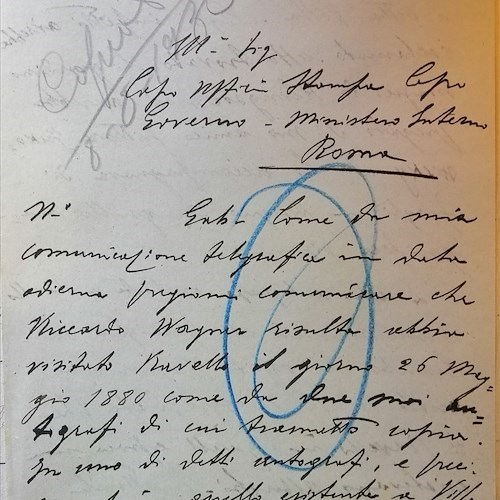 Ill.º Sig
Capo Ufficio Stampa Capo
Governo - Ministero Interno
Roma
N.º Gab. Come da mia
comunicazione telegrafica in data
odierna pregiomi comunicare che
Riccardo Wagner risulta abbia
visitato Ravello il giorno 26 Mag=
gio 1880 come da due suoi au=
tografi di cui trasmetto copia.
In uno di detti autografi, e preci=
quello esistente a Vill